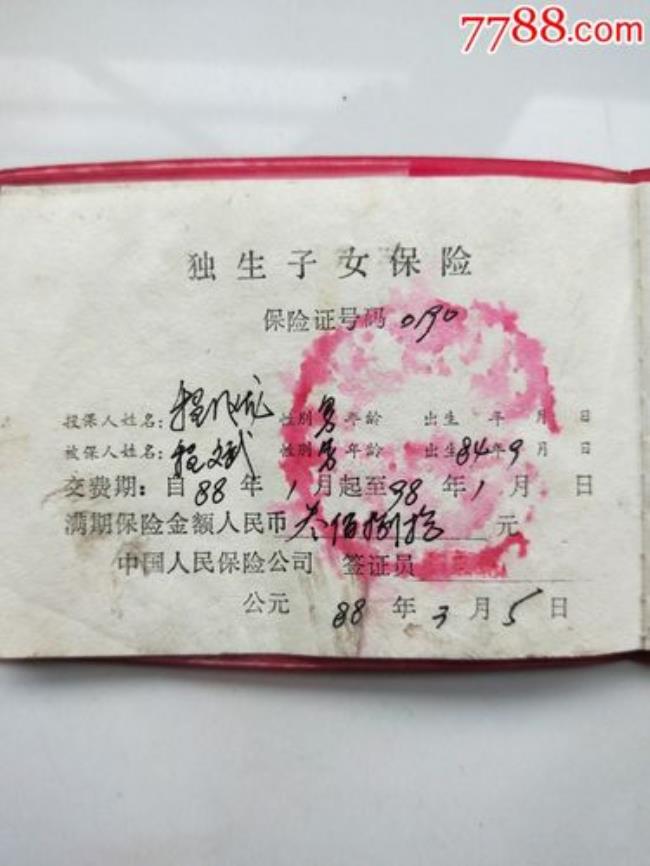 7788.com
独生子女保险
保险证号码 0190
投保人姓名：程 性别 男 年龄 出生 年 月 日
被保人姓名：程文斌 性别 男 年龄 出生 84年9月 日
交费期：自88年1月起至98年1月 日
满期保险金额人民币叁佰捌拾元
中国人民保险公司 签证员
公元 88年3月5日